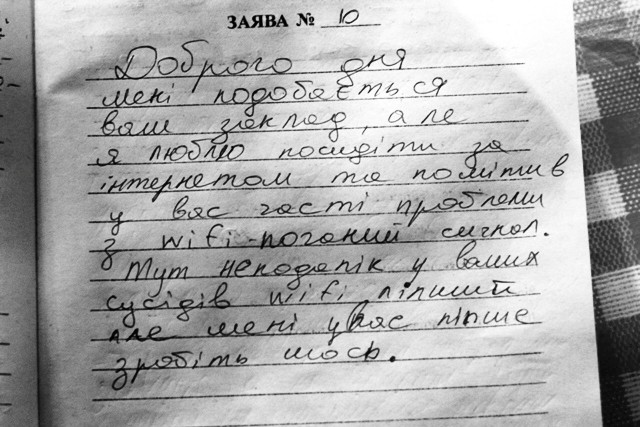 ЗАЯВА № 10
Доброго дня
мені подобається
ваш заклад, але
я люблю посидіти за
інтернетом та помітив
у вас часті проблеми
з wifi-поганий сигнал.
Тут неподалік у ваших
сусідів wifi ліпший
але мені у вас ліпше
зробіть щось.